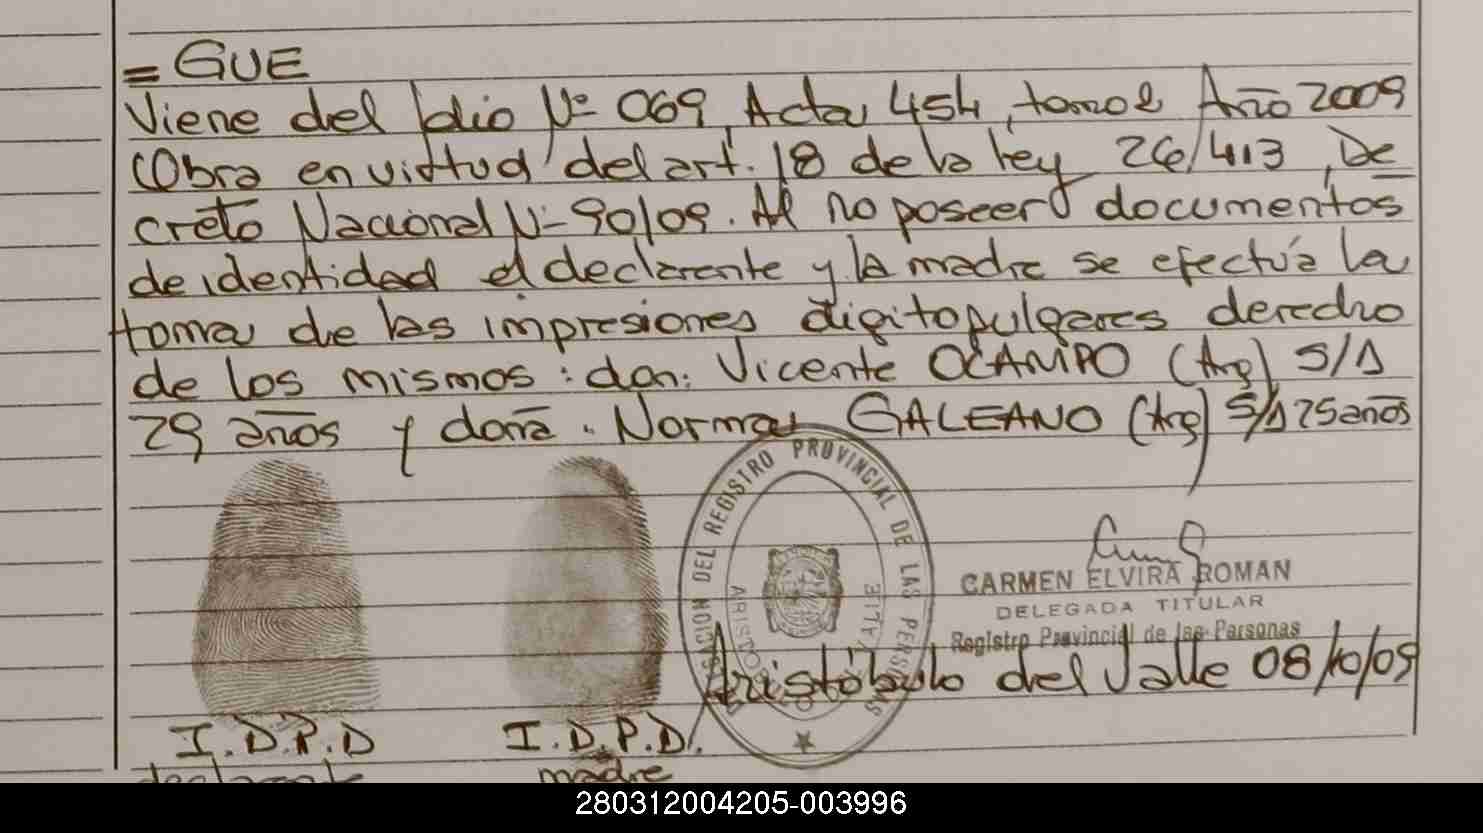 = GUE
Viene del folio Nº 069, Acta 454, tomo 2 Año 2009
Obra en virtud del art. 18 de la ley 26/413, De
creto Nacional Nº 90/09. Al no poseer documentos
de identidad el declarante y la madre se efectúa la
toma de las impresiones digitopulgares derecho
de los mismos: don: Vicente OCAMPO (Arg) S/D
29 años y doña. Norma GALEANO (Arg) S/D 25 años
REGISTRO PROVINCIAL DE LAS PERSONAS
CARMEN ELVIRA ROMAN
DELEGADA TITULAR
Registro Provincial de las Personas
Aristóbulo del Valle 08/10/09
I.D.P.D I.D.P.D.
declarante madre
280312004205-003996